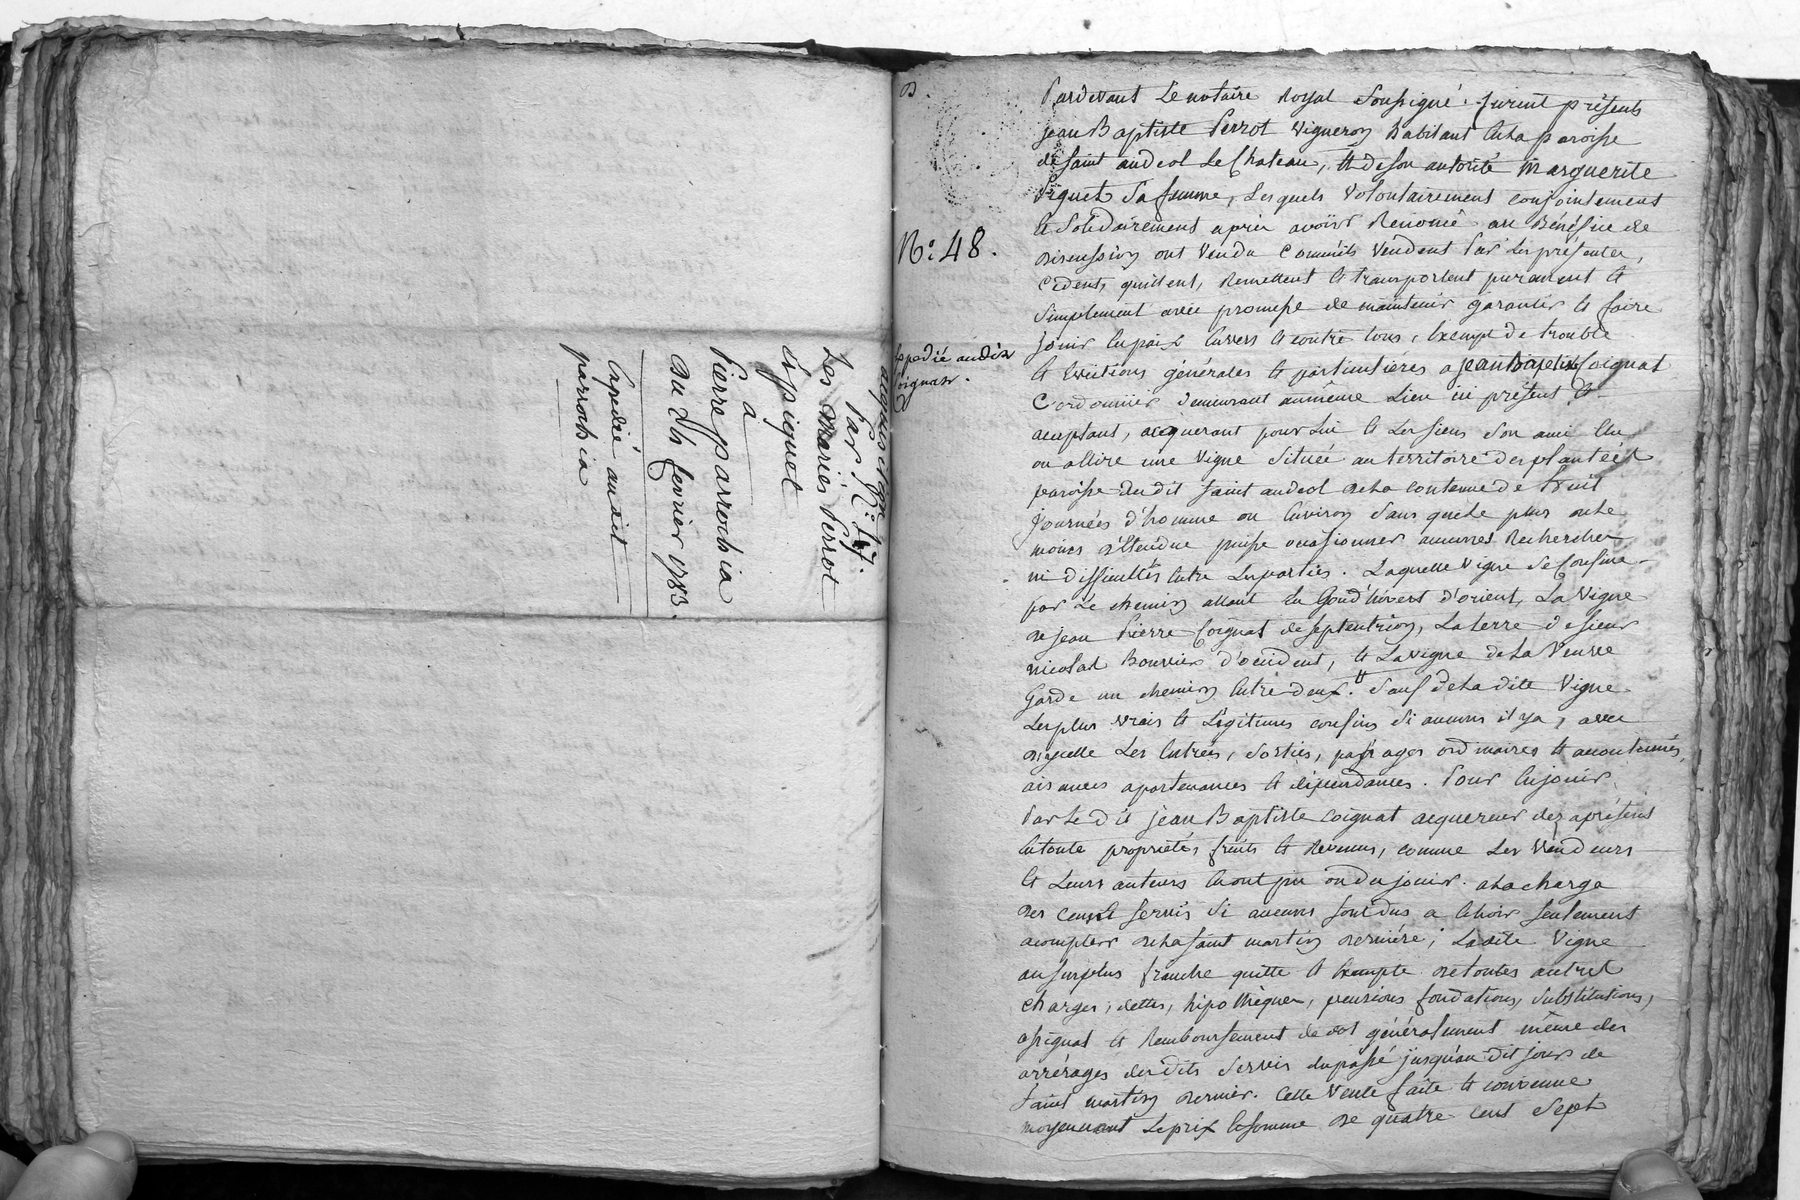 acquisition
Par N.° 47.
Les mariés Perrot
et piquet
a
Pierre parrochia
Du 24 fevrier 1783.
Expedié audit
parrochia
N.° 48.
Expedié audit
Coignat.
Pardevant Le notaire Royal soussigné. furent présents
jean Baptiste Perrot vigneron habitant en la paroisse
de saint andeol Le Chateau, et de son autorité Marguerite
Piquet sa femme, Lesquels volontairement conjointement
et solidairement après avoir Renoncé au Bénéfice de
discussion ont vendu comme ils vendent Par Les présentes,
cedent, quittent, Remettent et transportent purement et
simplement avec promesse de maintenir garantir et faire
jouir en paix envers et contre tous, exempt de trouble
et evictions générales et particulières a jean Baptiste Coignat
Cordonnier demeurant au même Lieu ici présent et
aceptant, acquerant pour Lui et Les siens son ami elu
ou a Elire une vigne située au territoire des plantées
paroisse dudit saint andeol de la contenue de huit
journées d'homme ou environ sans que le plus ou le
moins d'étendue puisse ocasionner aucunes Recherches
ni difficultés entre Les parties. Laquelle vigne se confine
par Le chemin allant en Gond'hivert d'orient, La vigne
de jean Pierre Coignat de septentrion, La terre de sieur
nicolas Bouvier d'occident, et La vigne de La veuve
Garde un chemin entre deux. Sauf de La dite vigne
Les plus vrais et Légitimes confins si aucuns il y a, avec
de icelle Les entrées, sorties, passages ordinaires et acoutumés,
aisances apartenances et dépendances. Pour en jouir
Par Le dit jean Baptiste Coignat acquereur des aprésent
en toute propriété, fruits et Revenus, comme Les vendeurs
et Leurs auteurs en ont pu ou du jouir. a La charge
des cens et servis si aucuns sont dus a echoir seulement
acompter de la saint martin derniére; Ladite vigne
au surplus franche quitte et exempte de toutes autres
charges, dettes, hipothèques, pensions fondations, substitutions,
assignat et Remboursement de dot généralement même des
arrérages desdits servis du passé jusqu'au dit jour de
Saint martin dernier. Cette vente faite et convenue
moyennant Le prix et somme de quatre cent sept